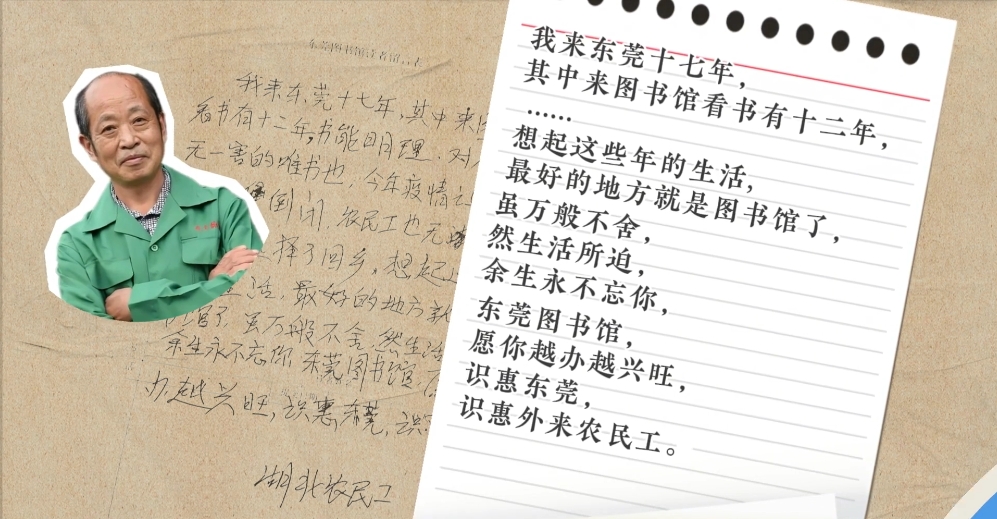 东莞图书馆读者留言表
我来东莞十七年,其中来
看书有十二年,书能明理,对
无一害的唯书也,今年疫情
倒闭,农民工也无
择了回乡,想起
活,最好的地方就
馆了,虽万般不舍,然生活
余生永不忘你,东莞图书馆
办越兴旺,识惠东莞,识
湖北农民工
我来东莞十七年,
其中来图书馆看书有十二年,
......
想起这些年的生活,
最好的地方就是图书馆了,
虽万般不舍,
然生活所迫,
余生永不忘你,
东莞图书馆,
愿你越办越兴旺,
识惠东莞,
识惠外来农民工。